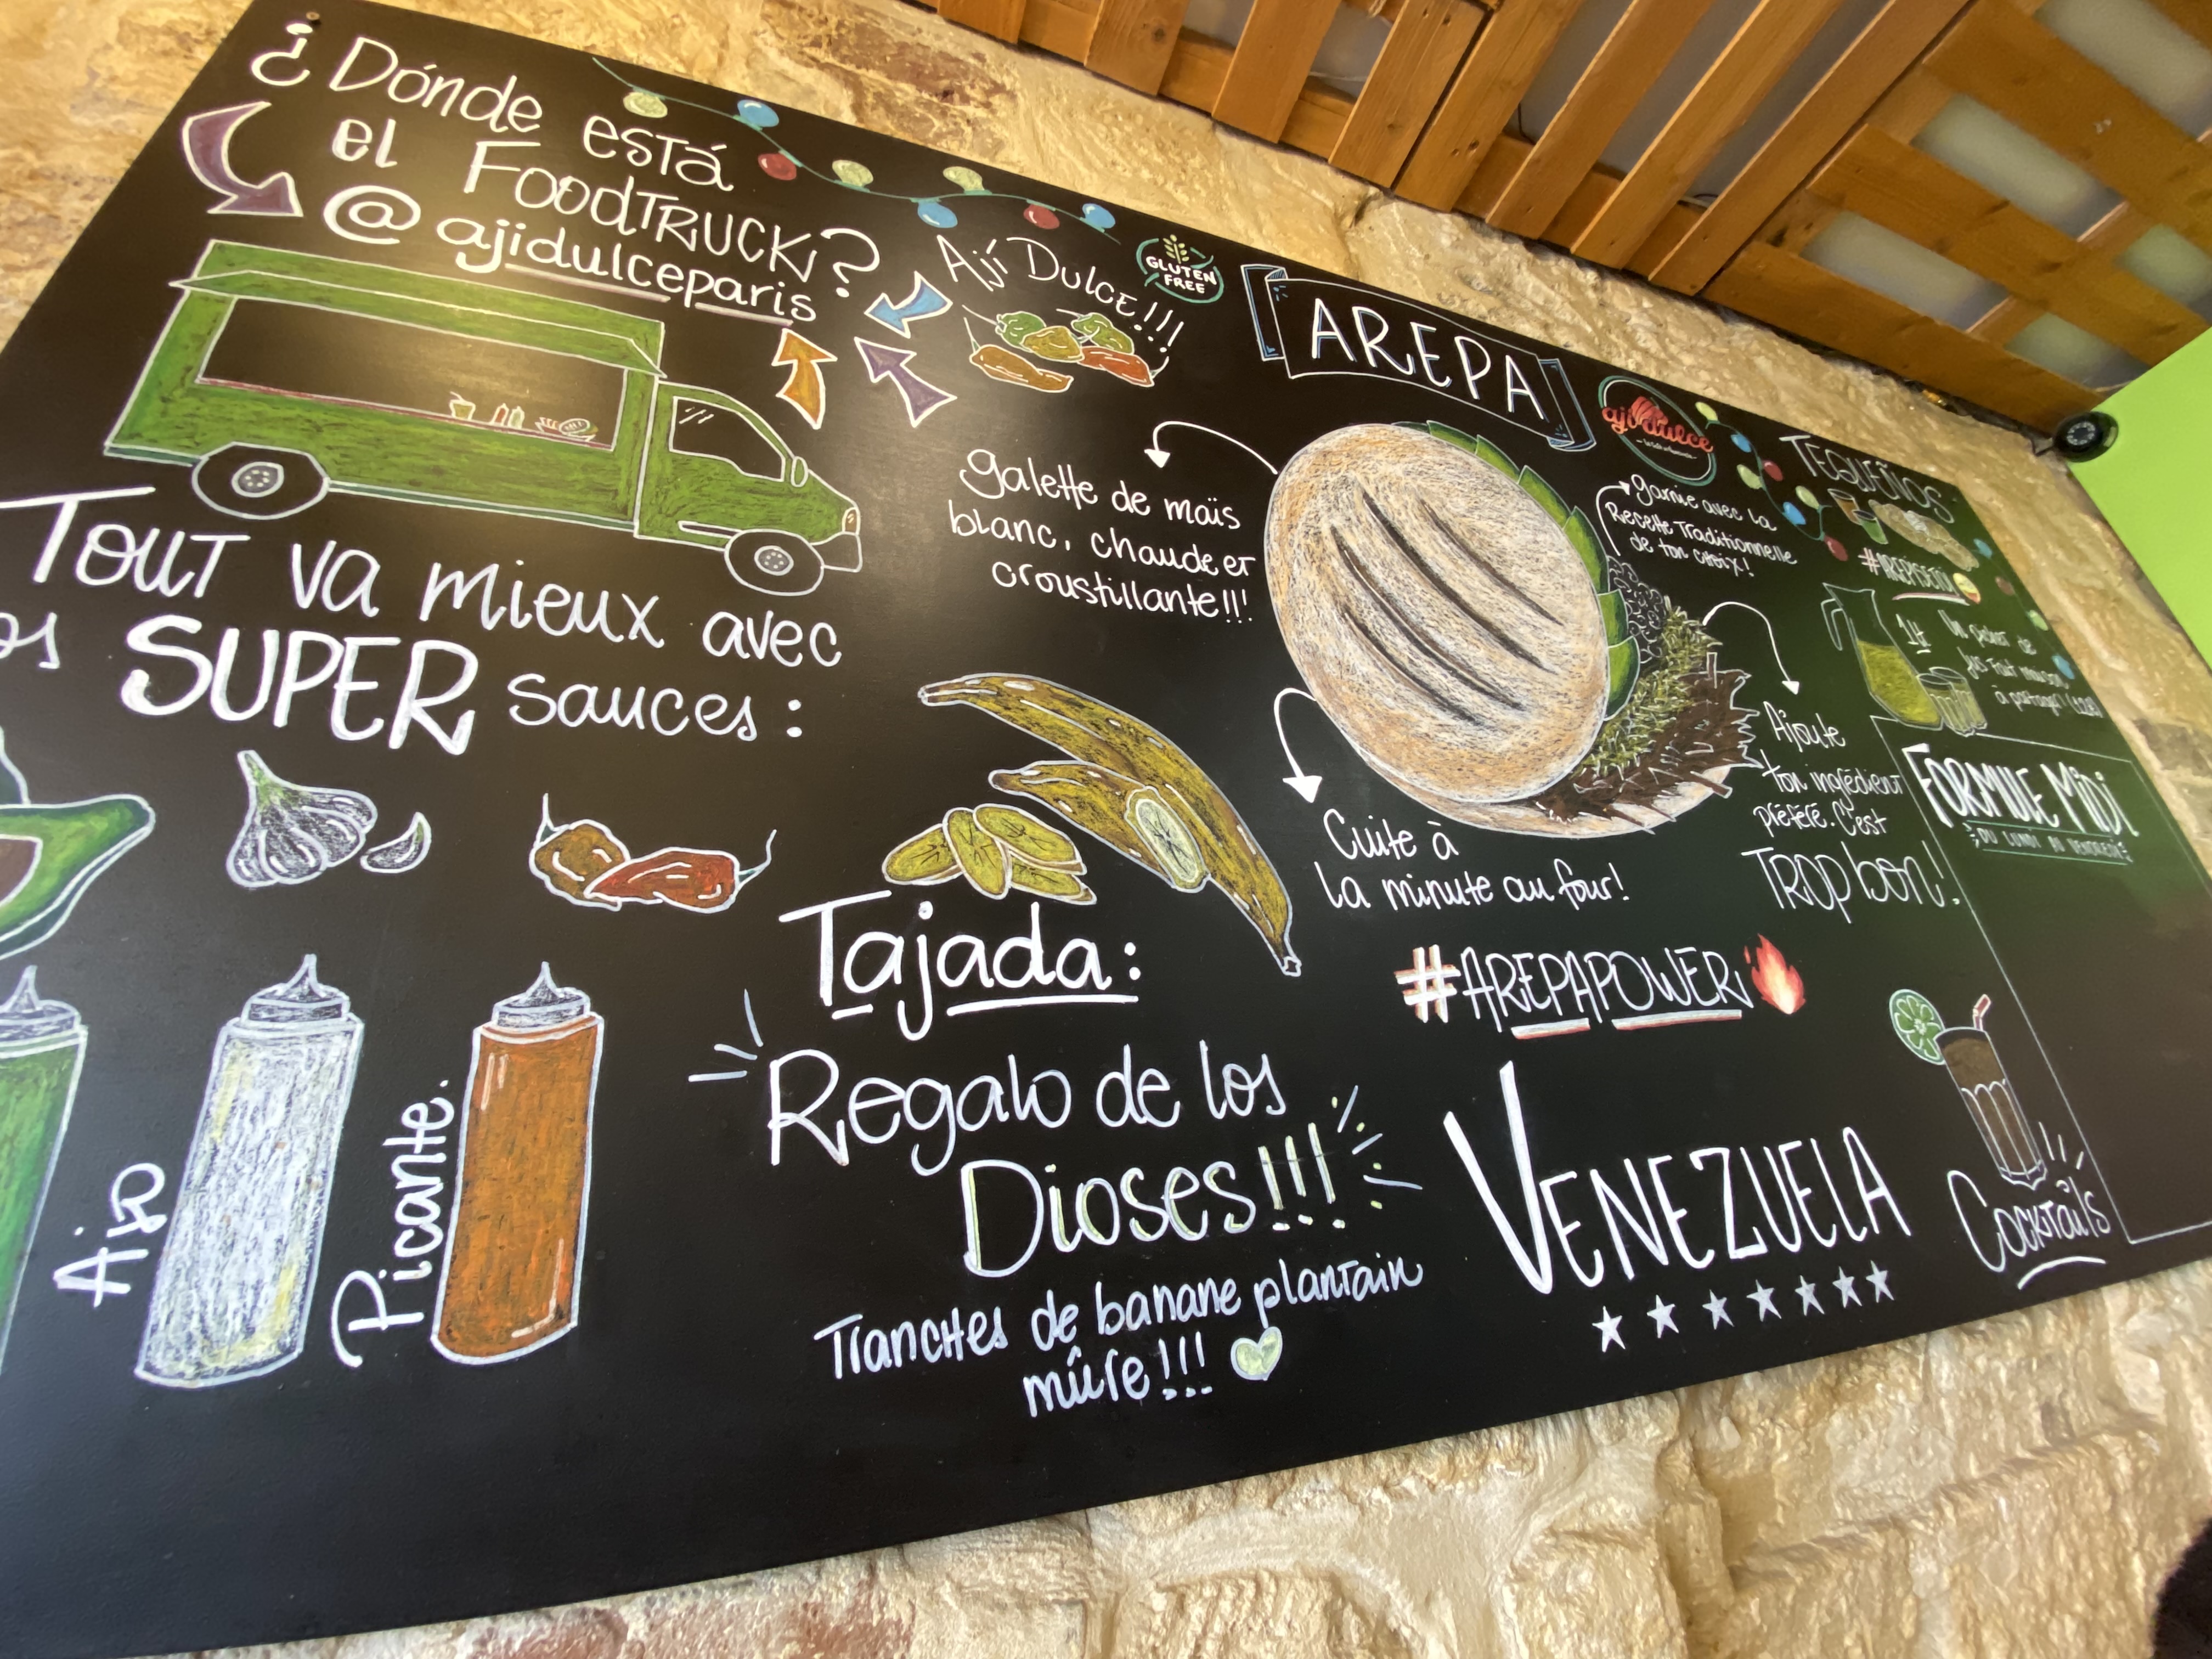 ¿Dónde está
el FoodTruck?
@ajidulceparis
Ají Dulce!!!
GLUTEN
FREE
AREPA
aji dulce
TEQUEÑOS
galette de maïs
blanc, chaude et
croustillante!!!
garnie avec la
Recette Traditionnelle
de ton choix!
Tout va mieux avec
os SUPER sauces:
1L
Ajoute
ton ingrédient
préféré. C'est
TROP bon!
Cuite à
la minute au four!
FORMULE Midi
DU LUNDI AU VENDREDI
#AREPAPOWER
Tajada:
Regalo de los
Dioses!!!
Tranches de banane plantain
mûre!!!
Ajo
Picante.
VENEZUELA
Cocktails